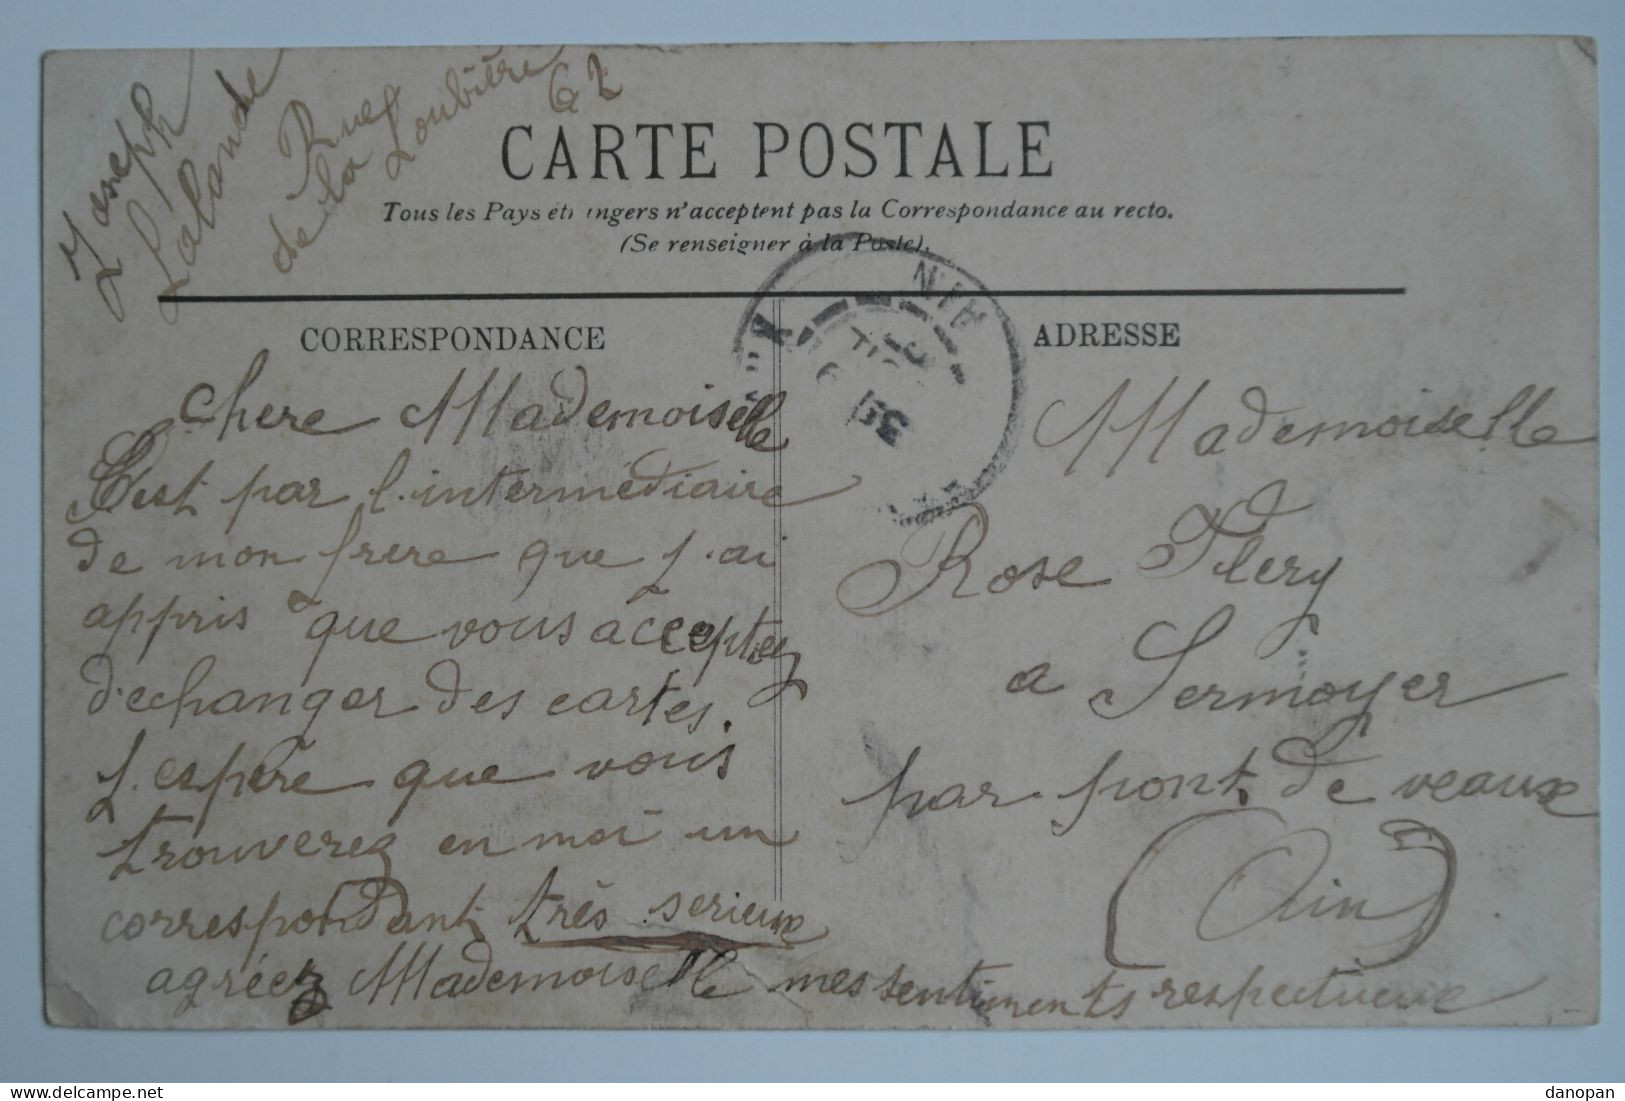 Joseph
Lalande
Rue
de la Loubière
62
CARTE POSTALE
Tous les Pays étrangers n'acceptent pas la Correspondance au recto.
(Se renseigner à la Poste).
CORRESPONDANCE
chere Mademoiselle
C'est par l'intermédiaire
de mon frere que j'ai
appris que vous acceptez
d'echanger des cartes.
j'espère que vous
trouverez en moi un
correspondant très serieux
agréez Mademoiselle mes sentiments respectueux
ADRESSE
AIN
Mademoiselle
Rose Flery
a Sermoyer
par pont de veaux
(Ain)
delcampe.net
danopan